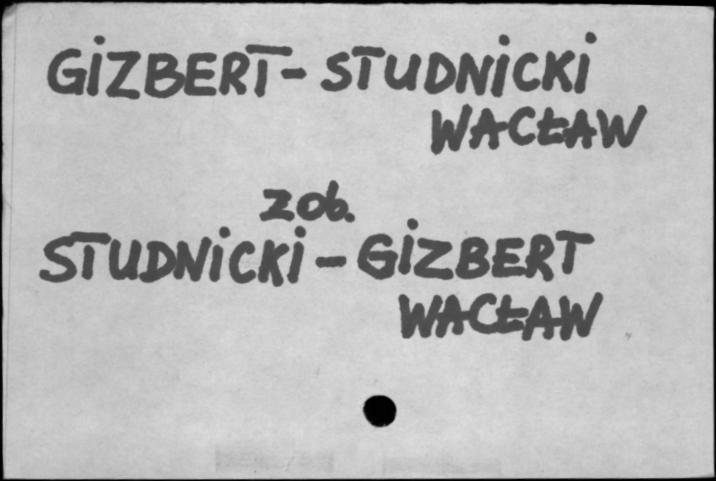 GIZBERT-STUDNICKI
WACŁAW
zob.
STUDNICKI-GIZBERT
WACŁAW